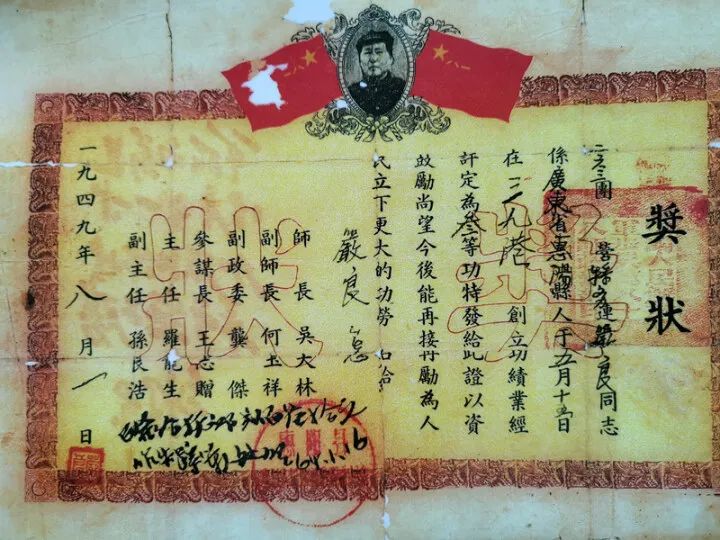 八一
八一
獎狀
團 營 連 良同志
係廣東省惠陽縣人于五月十五日
在 八港 創立功績業經
評定為叁等功特發給此證以資
鼓勵尚望今後能再接再勵為人
民立下更大的功勞 此給
嚴良
師長 吳大林
副師長 何玉祥
副政委 龔傑
參謀長 王志贈
主任 羅能生
副主任 孫民浩
一九四九年八月一日
64.1.16